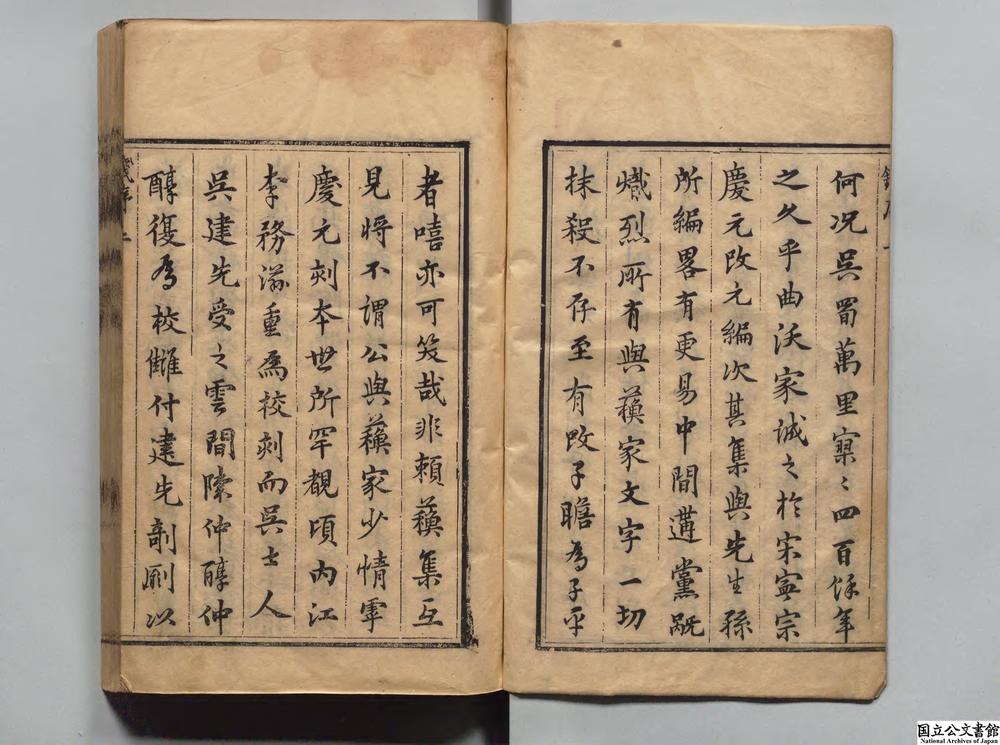 何况吳蜀萬里寥〻四百餘年
之久乎曲沃家誠之於宋寧宗
慶元改元編次其集與先生孫
所編畧有更易中間遘黨既
熾烈所有與蘓家文字一切
抹殺不存至有改子瞻為子平
者嘻亦可笑哉非賴蘓集互
見將不謂公與蘓家少情事
慶元刻本世所罕覩頃內江
李務滋重為校刻而吳士人
吳建先受之雲間陳仲醇仲
醇復為校雠付建先剞劂以
序二
国立公文書館
National Archives of Japan